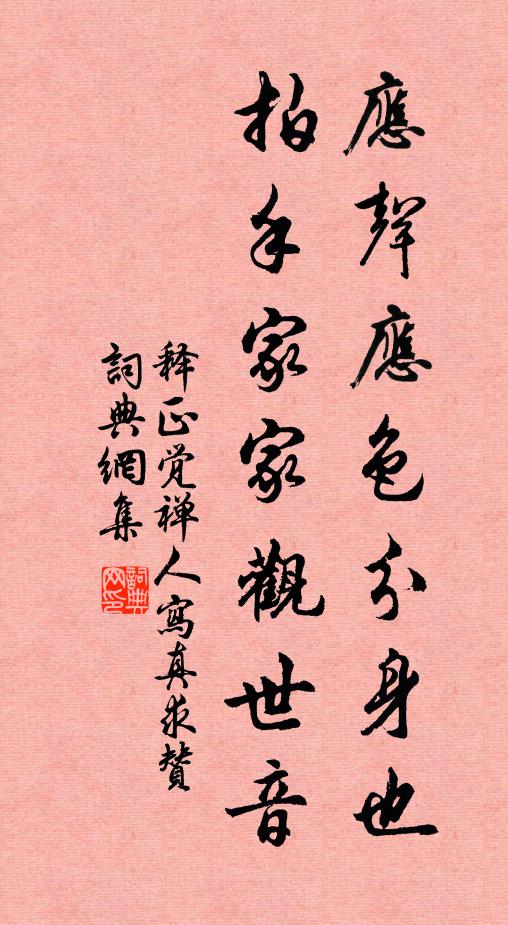 應聲應色分身也
拍手家家觀世音
释正觉禅人寫真求贊
詞典網集
詞典网印